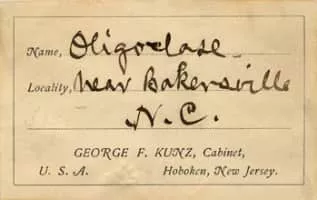 Name, Oligoclase
Locality, near Bakersville
N.C.
GEORGE F. KUNZ, Cabinet,
U. S. A. Hoboken, New Jersey.